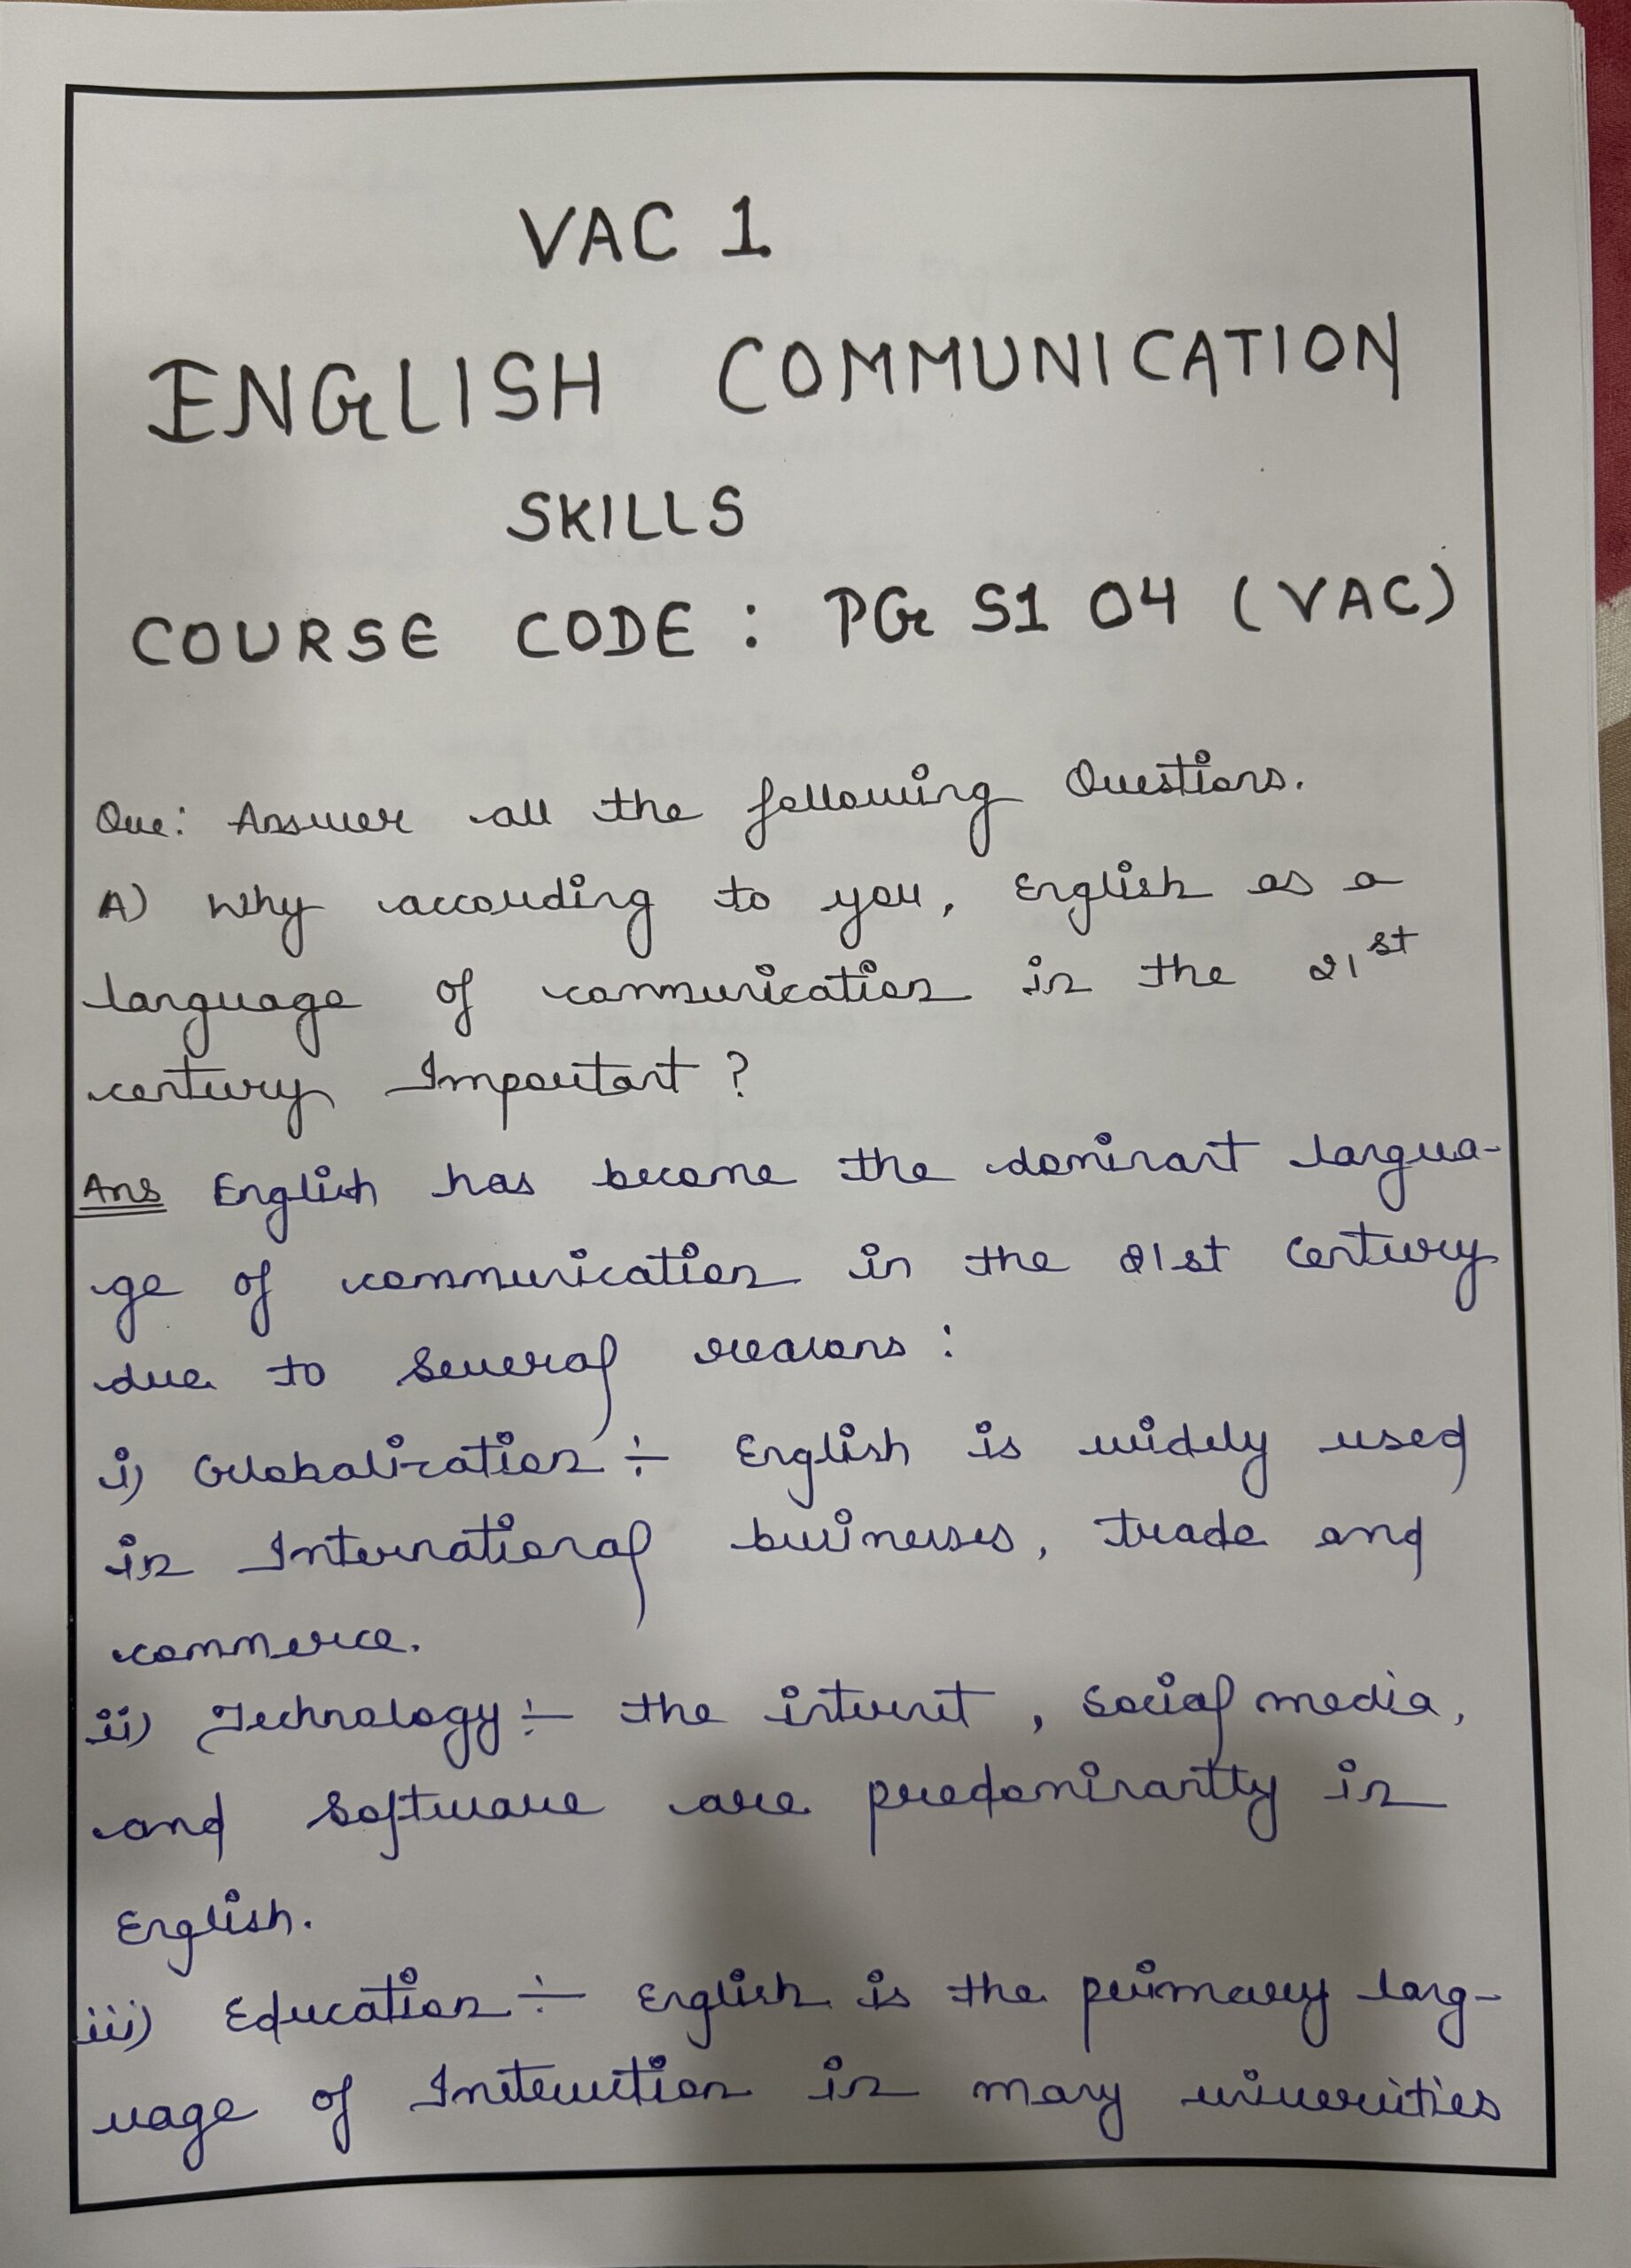 VAC 1
ENGLISH COMMUNICATION
SKILLS
COURSE CODE : PG S1 04 (VAC)
Que: Answer all the following Questions.
A) Why according to you, English as a
language of communication in the 21st
century Important ?
Ans English has become the dominant langua-
ge of communication in the 21st century
due to several reasons :
i) Globalization ÷ English is widely used
in International businesses, trade and
commerce.
ii) Technology ÷ the internet, social media,
and software are predominantly in
English.
iii) Education ÷ English is the primary lang-
uage of Instruction in many universities